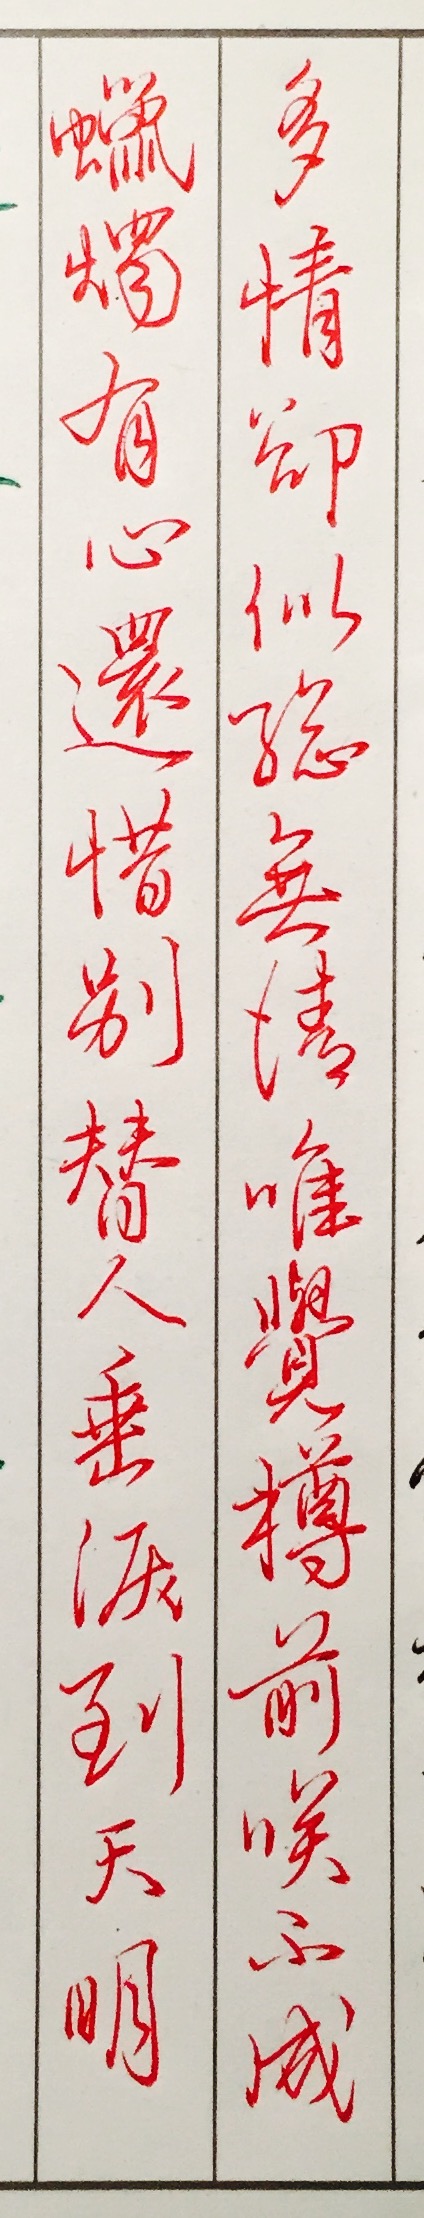 多情卻似總無情唯覺樽前咲不成
蠟燭有心還惜別替人垂淚到天明